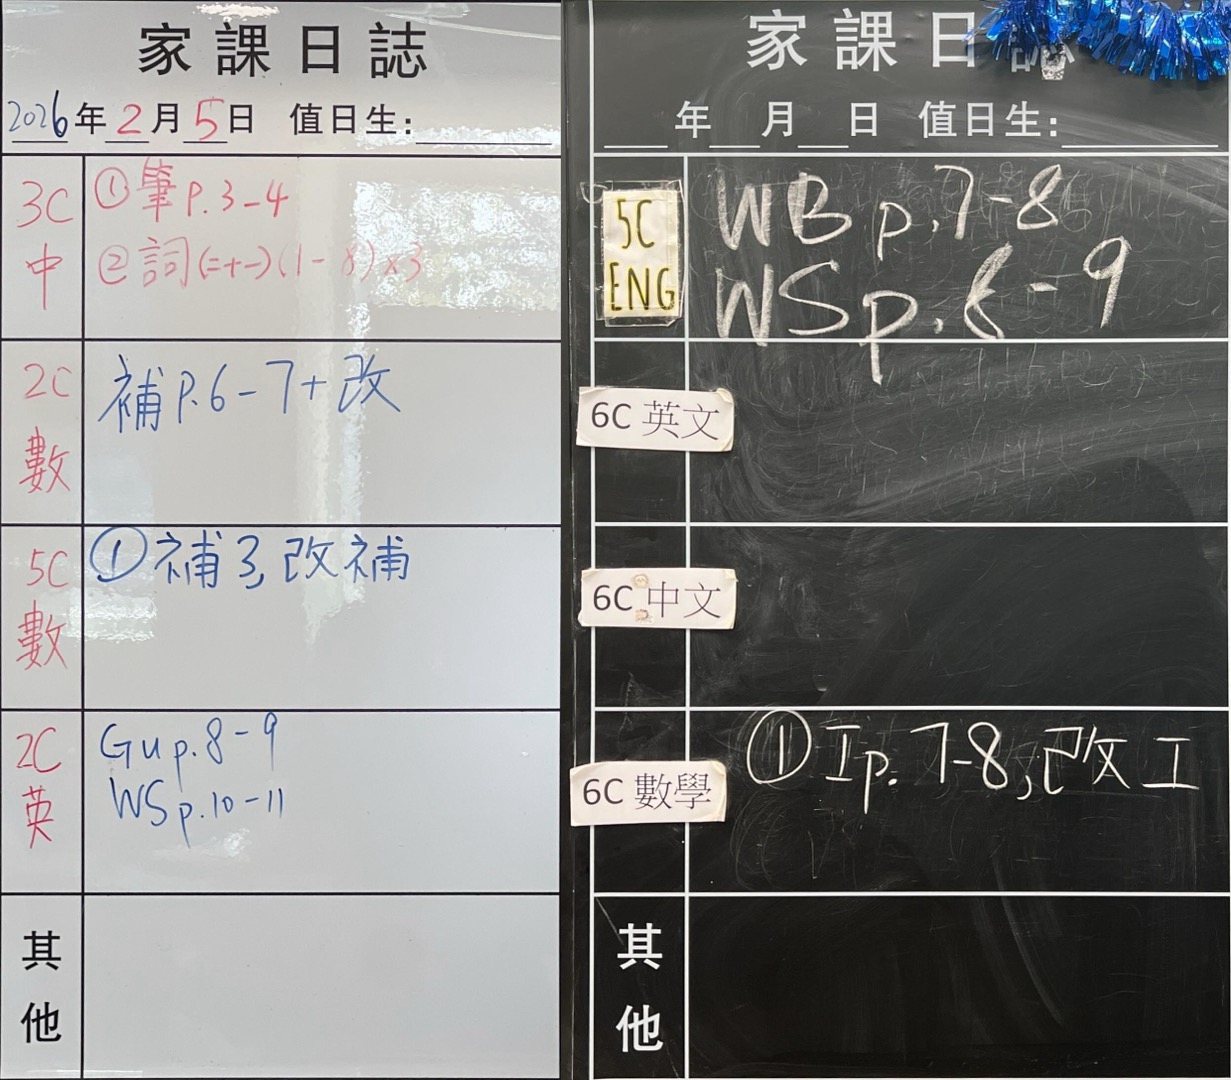 家課日誌
2026年2月5日 值日生:
3C
中
①筆p.3-4
②詞(二+一)(1-8)×3
2C
數
補p.6-7+改
5C
數
①補3,改補
2C
英
Gup.8-9
WSp.10-11
其
他
家課日誌
年 月 日 值日生:
5C
ENG
WB p.7-8
WS p.8-9
6C 英文
6C 中文
6C 數學
①工p.7-8,改工
其
他